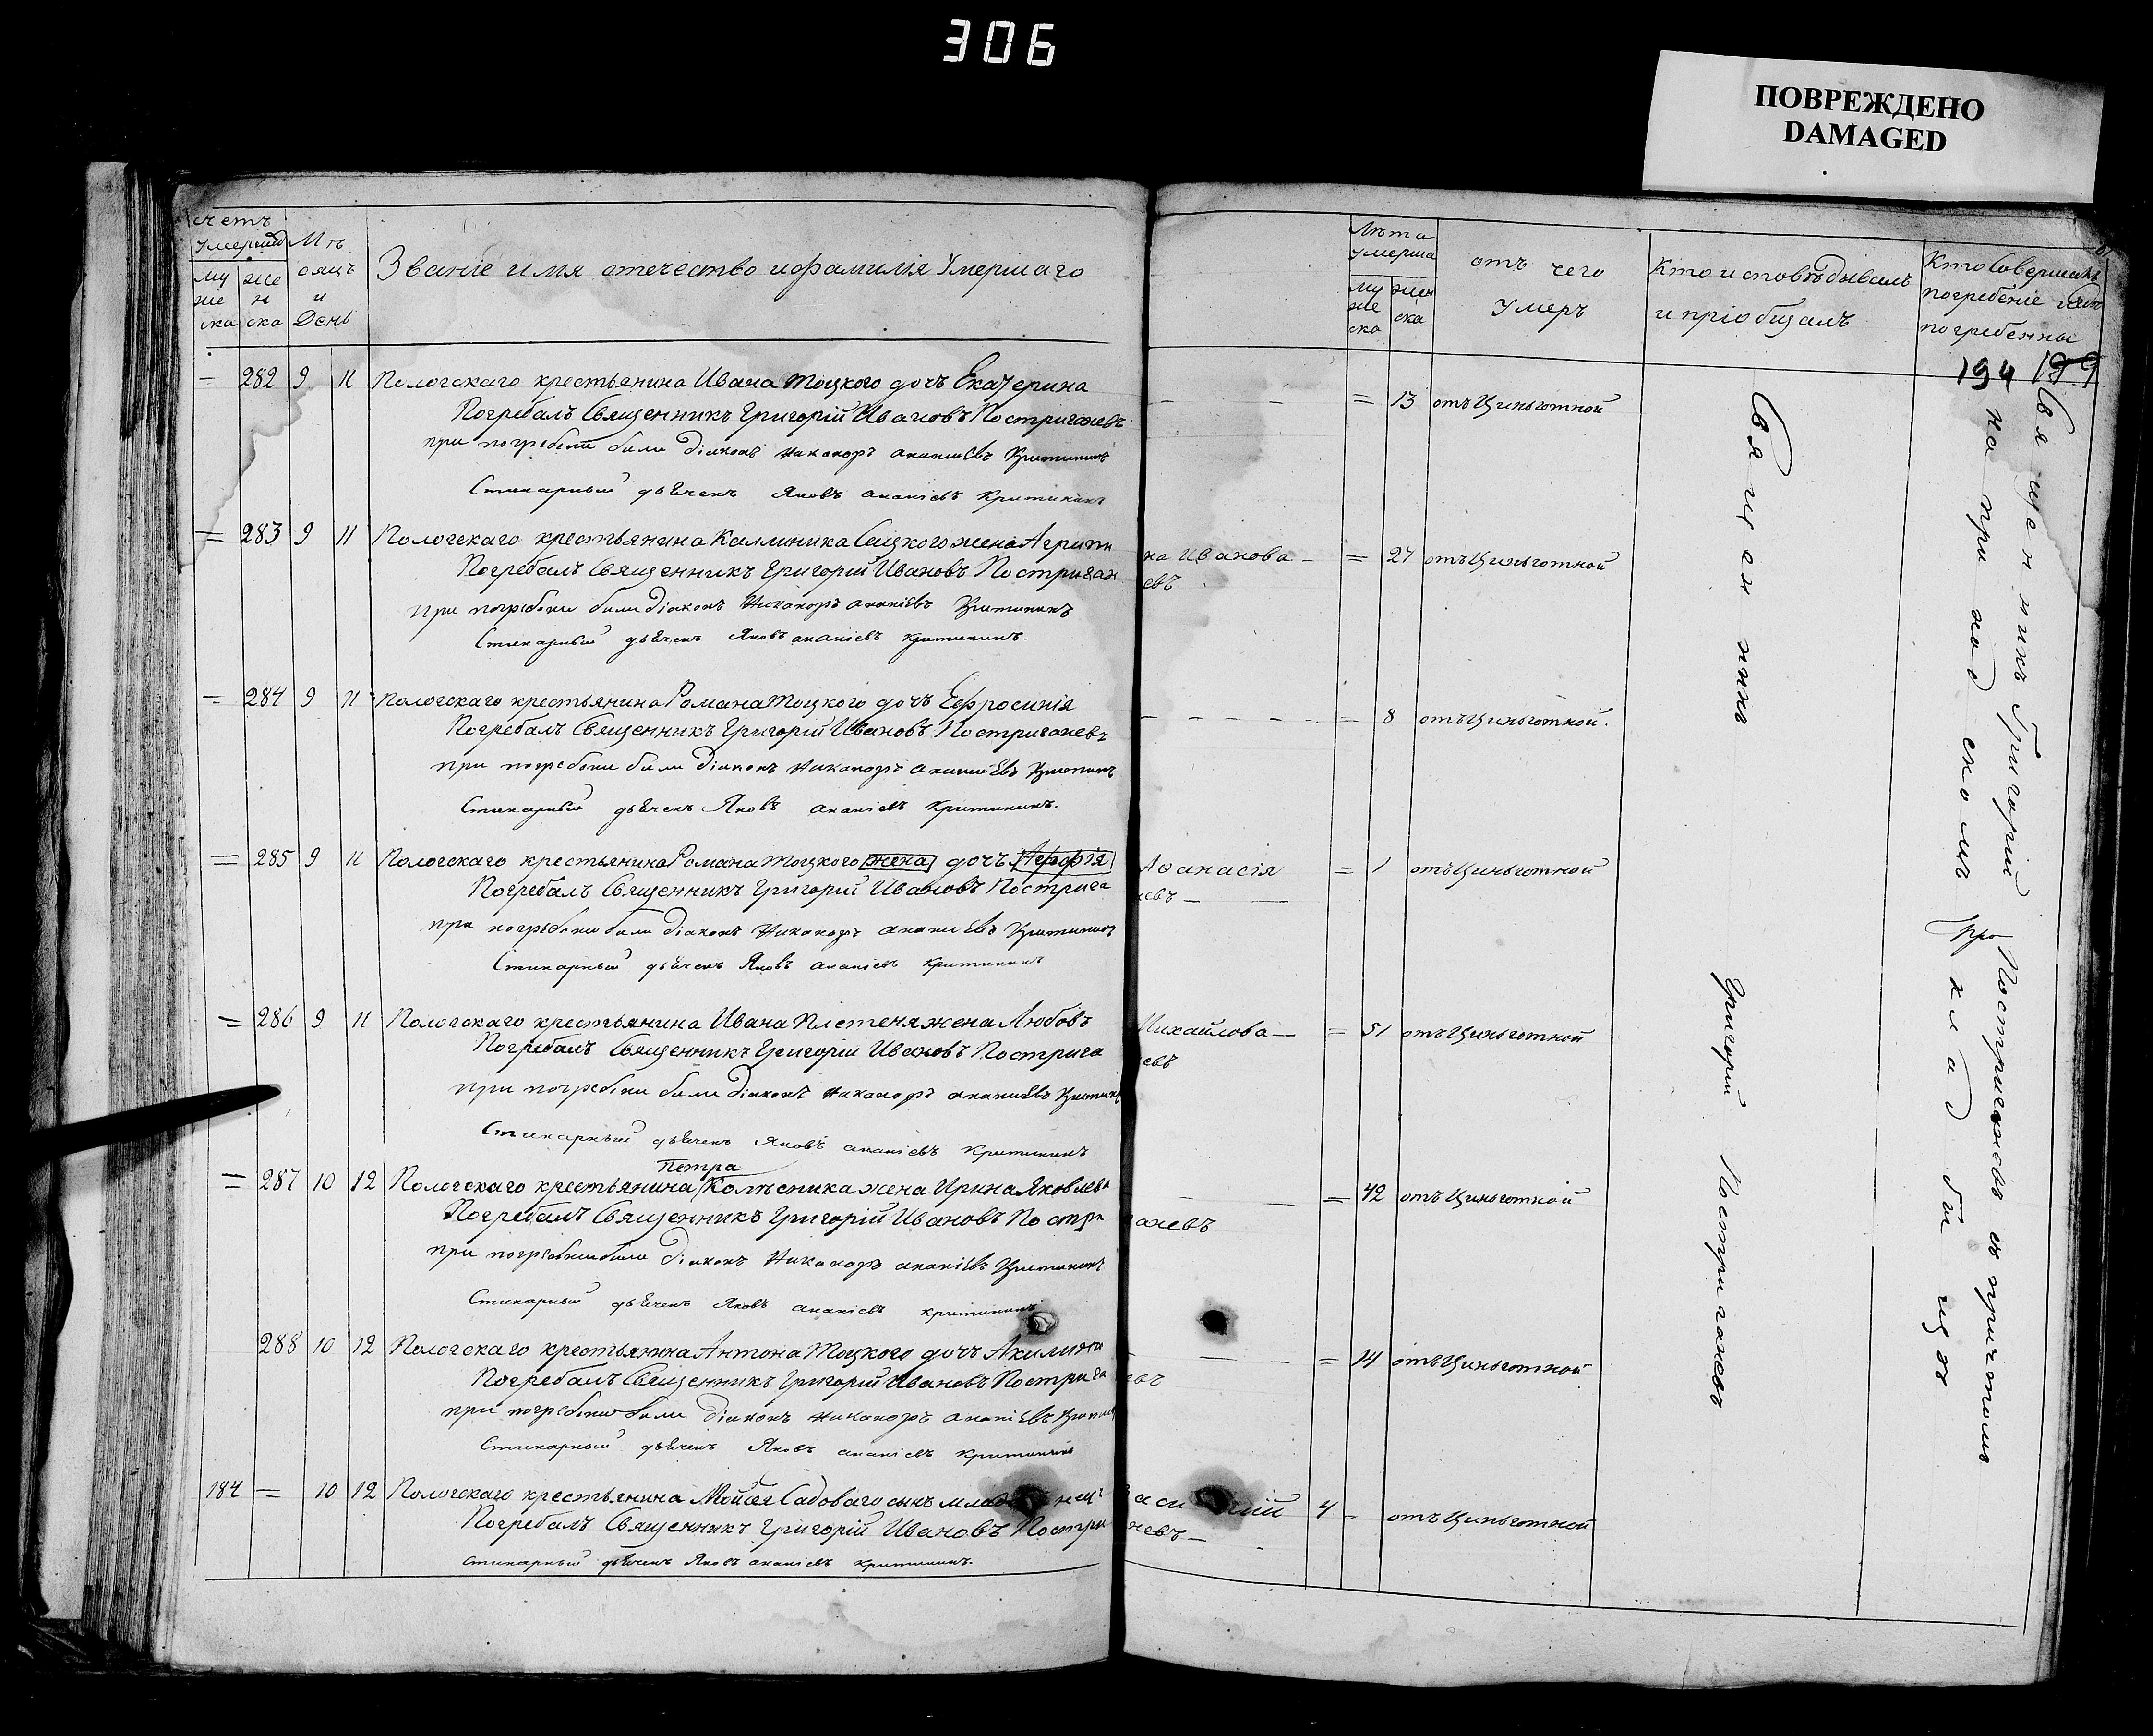 306
ПОВРЕЖДЕНО
DAMAGED
счетъ
Умершихъ
Мѣ
сяцъ
и
День
му
же
ска
же
н
ска
Званіе имя отечество и фамилія Умершаго
Лѣта
Умерша
му
же
ска
жен
ска
отъ чего
Умеръ
Кто исповѣдывалъ
и пріобщалъ
Кто Совершалъ
погребеніе
погребены
194 199
— 282 9 11 Пологскаго крестьянина Ивана Тоцкого дочь Екатерина — — = 13 отъ Цынготной
Погребалъ Священникъ Григорій Ивановъ Постригачевъ
при погребени были Діаконъ Никаноръ ананіевъ Критининъ
Стихарный дьячекъ Яковъ ананіевъ Критининъ
= 283 9 11 Пологскаго крестьянина Каллиника Сацкого жена Агрипина Иванова — = 27 отъ Цынготной
Погребалъ Священникъ Григорій Ивановъ Постригачевъ
при погребени были Діаконъ Никаноръ ананіевъ Критининъ
Стихарный дьячекъ Яковъ ананіевъ Критининъ.
= 284 9 11 Пологскаго крестьянина Романа Тоцкого дочь Ефросинія — — — — — 8 отъ Цынготной.
Погребалъ Священникъ Григорій Ивановъ Постригачевъ
при погребени были Діаконъ Никаноръ ананіевъ Критининъ
Стихарный дьячекъ Яковъ ананіевъ Критининъ.
= 285 9 11 Пологскаго крестьянина Романа Тоцкого жена дочь Афанасія = 1 отъ Цынготной
Погребалъ Священникъ Григорій Ивановъ Постригачевъ — —
при погребени были Діаконъ Никаноръ ананіевъ Критининъ
Стихарный дьячекъ Яковъ ананіевъ Критининъ
= 286 9 11 Пологского крестьянина Ивана Плетеня жена Любовь Михайлова — = 51 отъ Цынготной
Погребалъ Священникъ Григорій Ивановъ Постригачевъ
при погребени были Діаконъ Никаноръ ананіевъ Критининъ
Стихарный дьячекъ Яковъ ананіевъ Критининъ
Петра
= 287 10 12 Пологскаго крестьянина Колѣсника жена Ирина Яковлева — — = 42 отъ Цынготной
Погребалъ Священникъ Григорій Ивановъ Постригачевъ
при погребени были Діаконъ Никаноръ ананіевъ Критининъ
Стихарный дьячекъ Яковъ ананіевъ Критининъ
288 10 12 Пологскаго крестьянина Антона Тоцкого дочь Акилина — — — = 14 отъ Цынготной
Погребалъ Священникъ Григорій Ивановъ Постригачевъ
при погребени были Діаконъ Никаноръ ананіевъ Критининъ
Стихарный дьячекъ Яковъ ананіевъ Критининъ
184 = 10 12 Пологскаго крестьянина Мойсея Садоваго сынъ младенецъ 4 — отъ Цынготной
Погребалъ Священникъ Григорій Ивановъ Постригачевъ —
Стихарный дьячекъ Яковъ ананіевъ Критининъ.
Священникъ Григорій Постригачевъ
Священникъ Григорій Постригачевъ съ причетомъ
на приходскомъ кладбищѣ